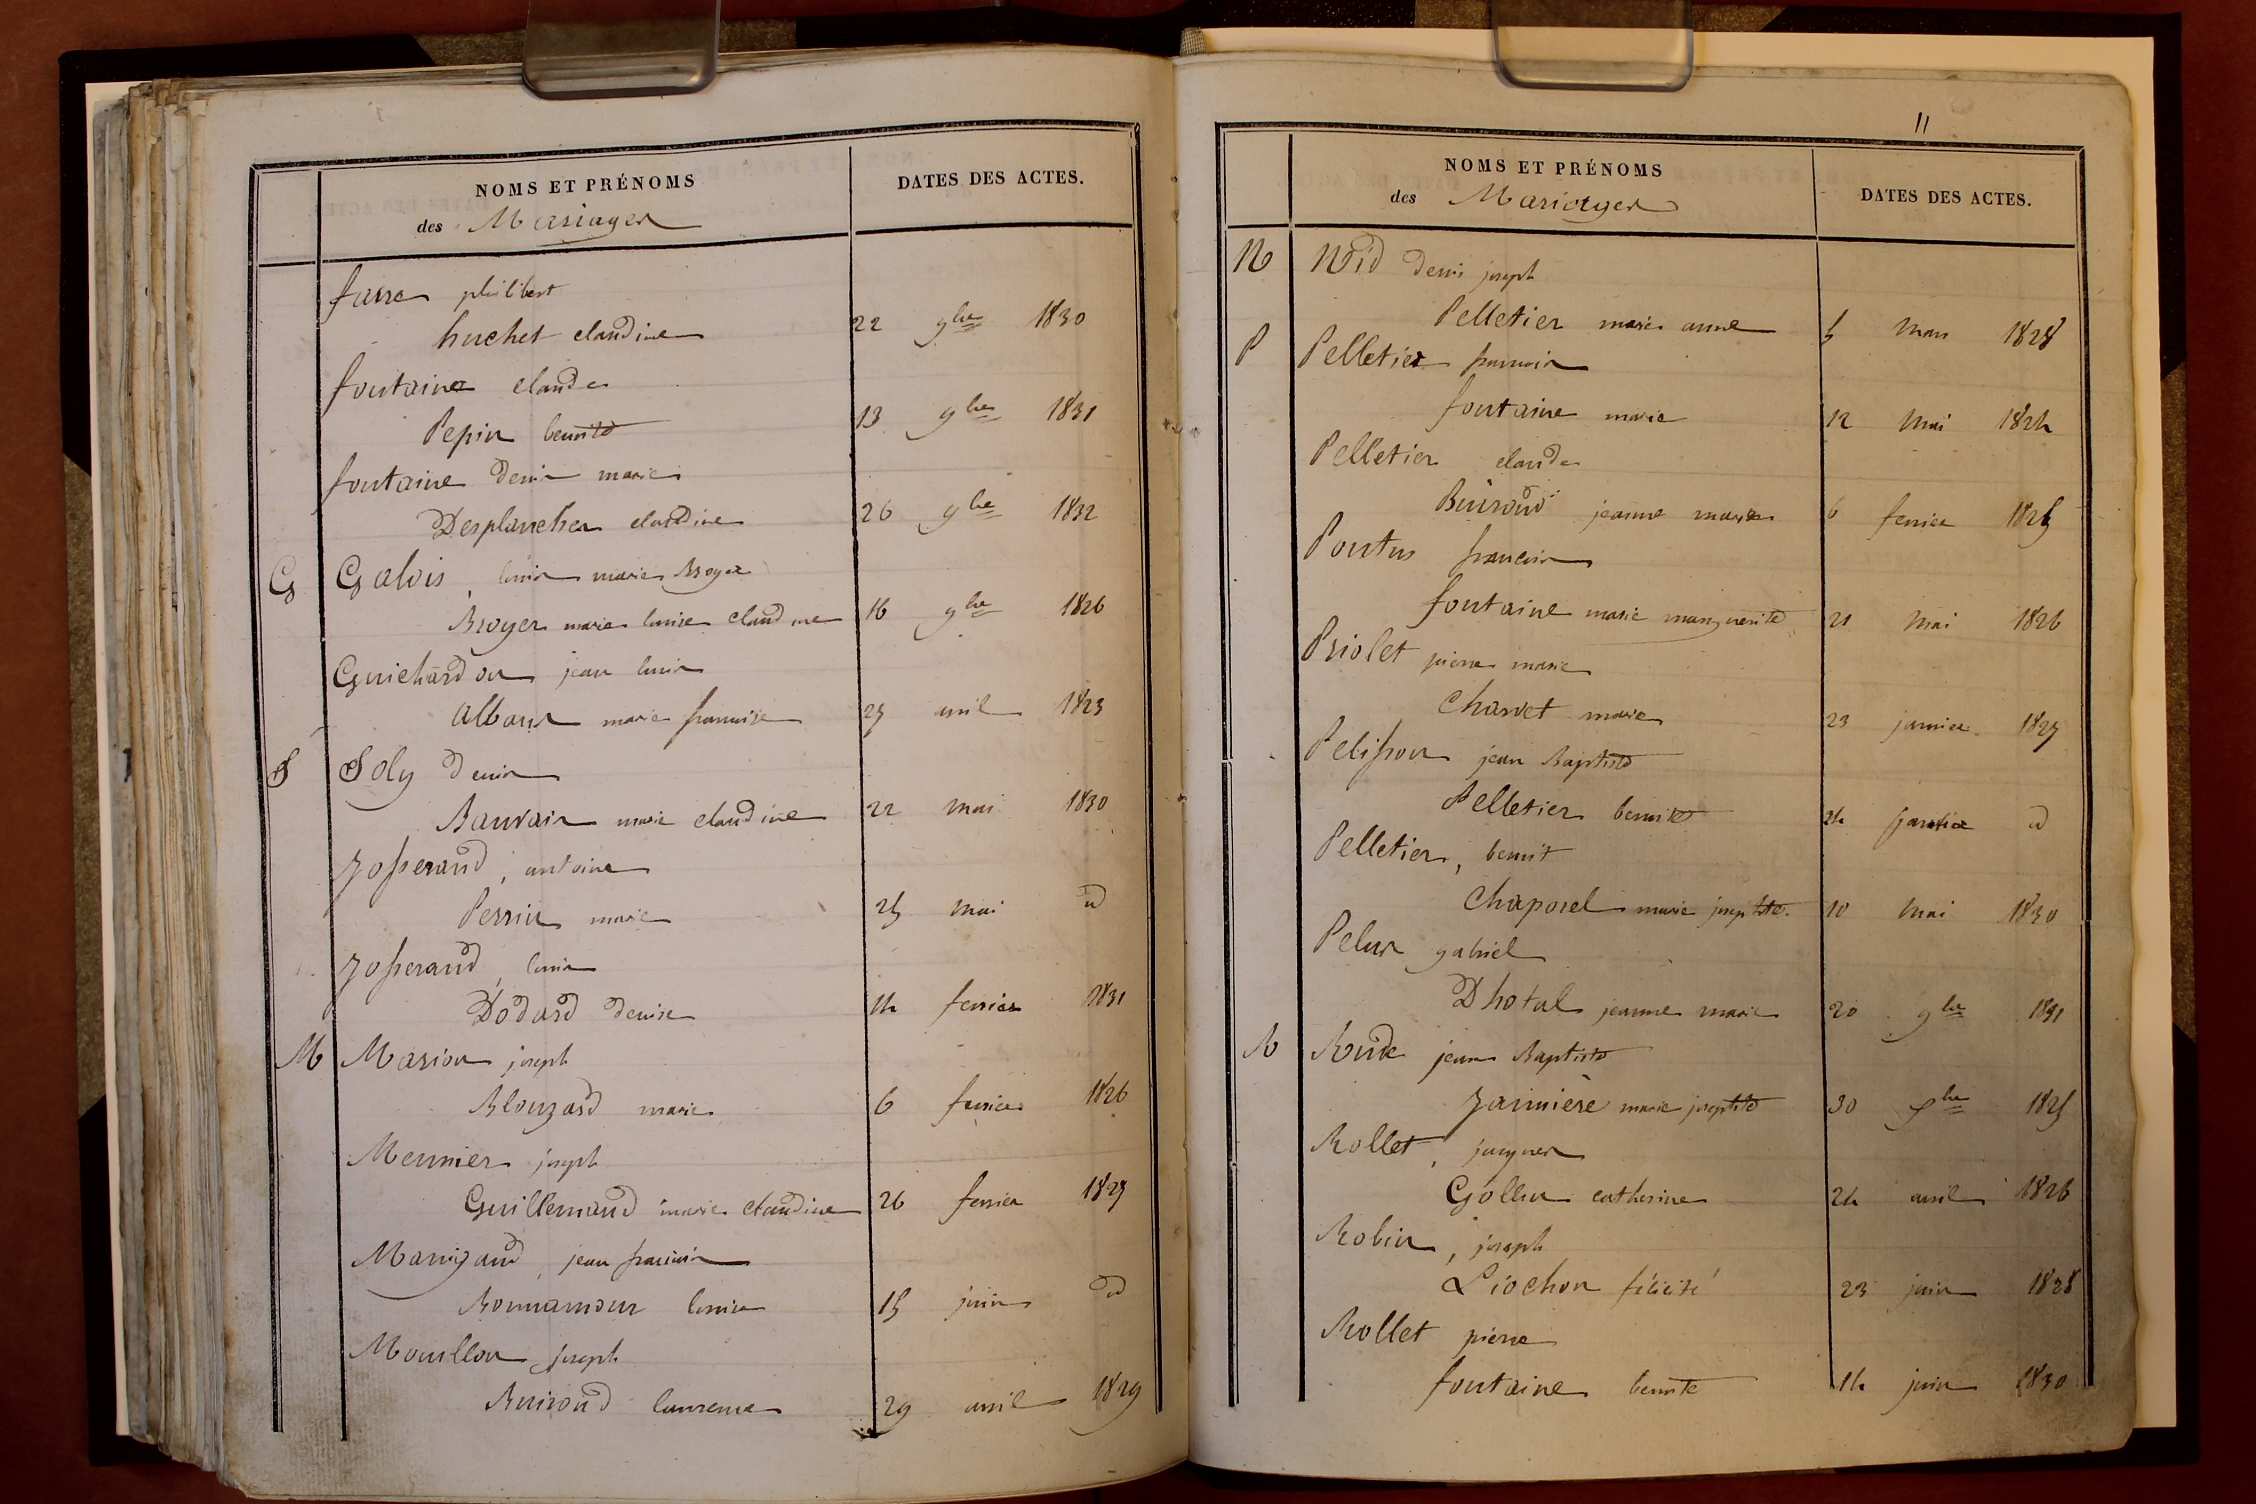 NOMS ET PRÉNOMS
des Mariages
DATES DES ACTES.
favre philibert
huchet claudine 22 9bre 1830
fontaine claude
Pepin benoite 13 9bre 1831
fontaine denis marie
Desplanches claudine 26 9bre 1832
G Galois, louis marie Broyer
Broyer marie louise claudine 16 9bre 1826
Guichardon jean louis
Alban marie françoise 29 avril 1823
J Joly denis
Bauvais marie claudine 22 mai 1830
Josserand, antoine
Perrin marie 25 mai id
Josserand, louis
Dodard denise 14 fevrier 1831
M Marion joseph
Blouzard marie 6 fevrier 1826
Meunier joseph
Guillemaud marie claudine 26 fevrier 1829
Manigaud, jean francois
Bonnamour louise 15 juin id
Mouillon joseph
Buiroud laurence 29 avril 1829
11
NOMS ET PRÉNOMS
des Mariages
DATES DES ACTES.
N Nid denis joseph
Pelletier marie anne 5 mars 1828
P Pelletier francois
fontaine marie 12 mai 1824
Pelletier claude
Buiroud jeanne marie 6 fevrier 1825
Pontus francois
fontaine marie marguerite 21 mai 1826
Priolet pierre marie
Charvet marie 23 janvier 1827
Pelisson jean Baptiste
Pelletier benoite 24 janvier id
Pelletier, benoit
Chaporel marie josephte 10 mai 1830
Pelus gabriel
Dhotal jeanne marie 20 9bre 1831
R Rude jean Baptiste
Janniere marie josephte 30 1825
Rollet, jacques
Gollin catherine 24 avril 1826
Robin, joseph
Liochon félicité 23 juin 1828
Rollet pierre
fontaine benoite 14 juin 1830